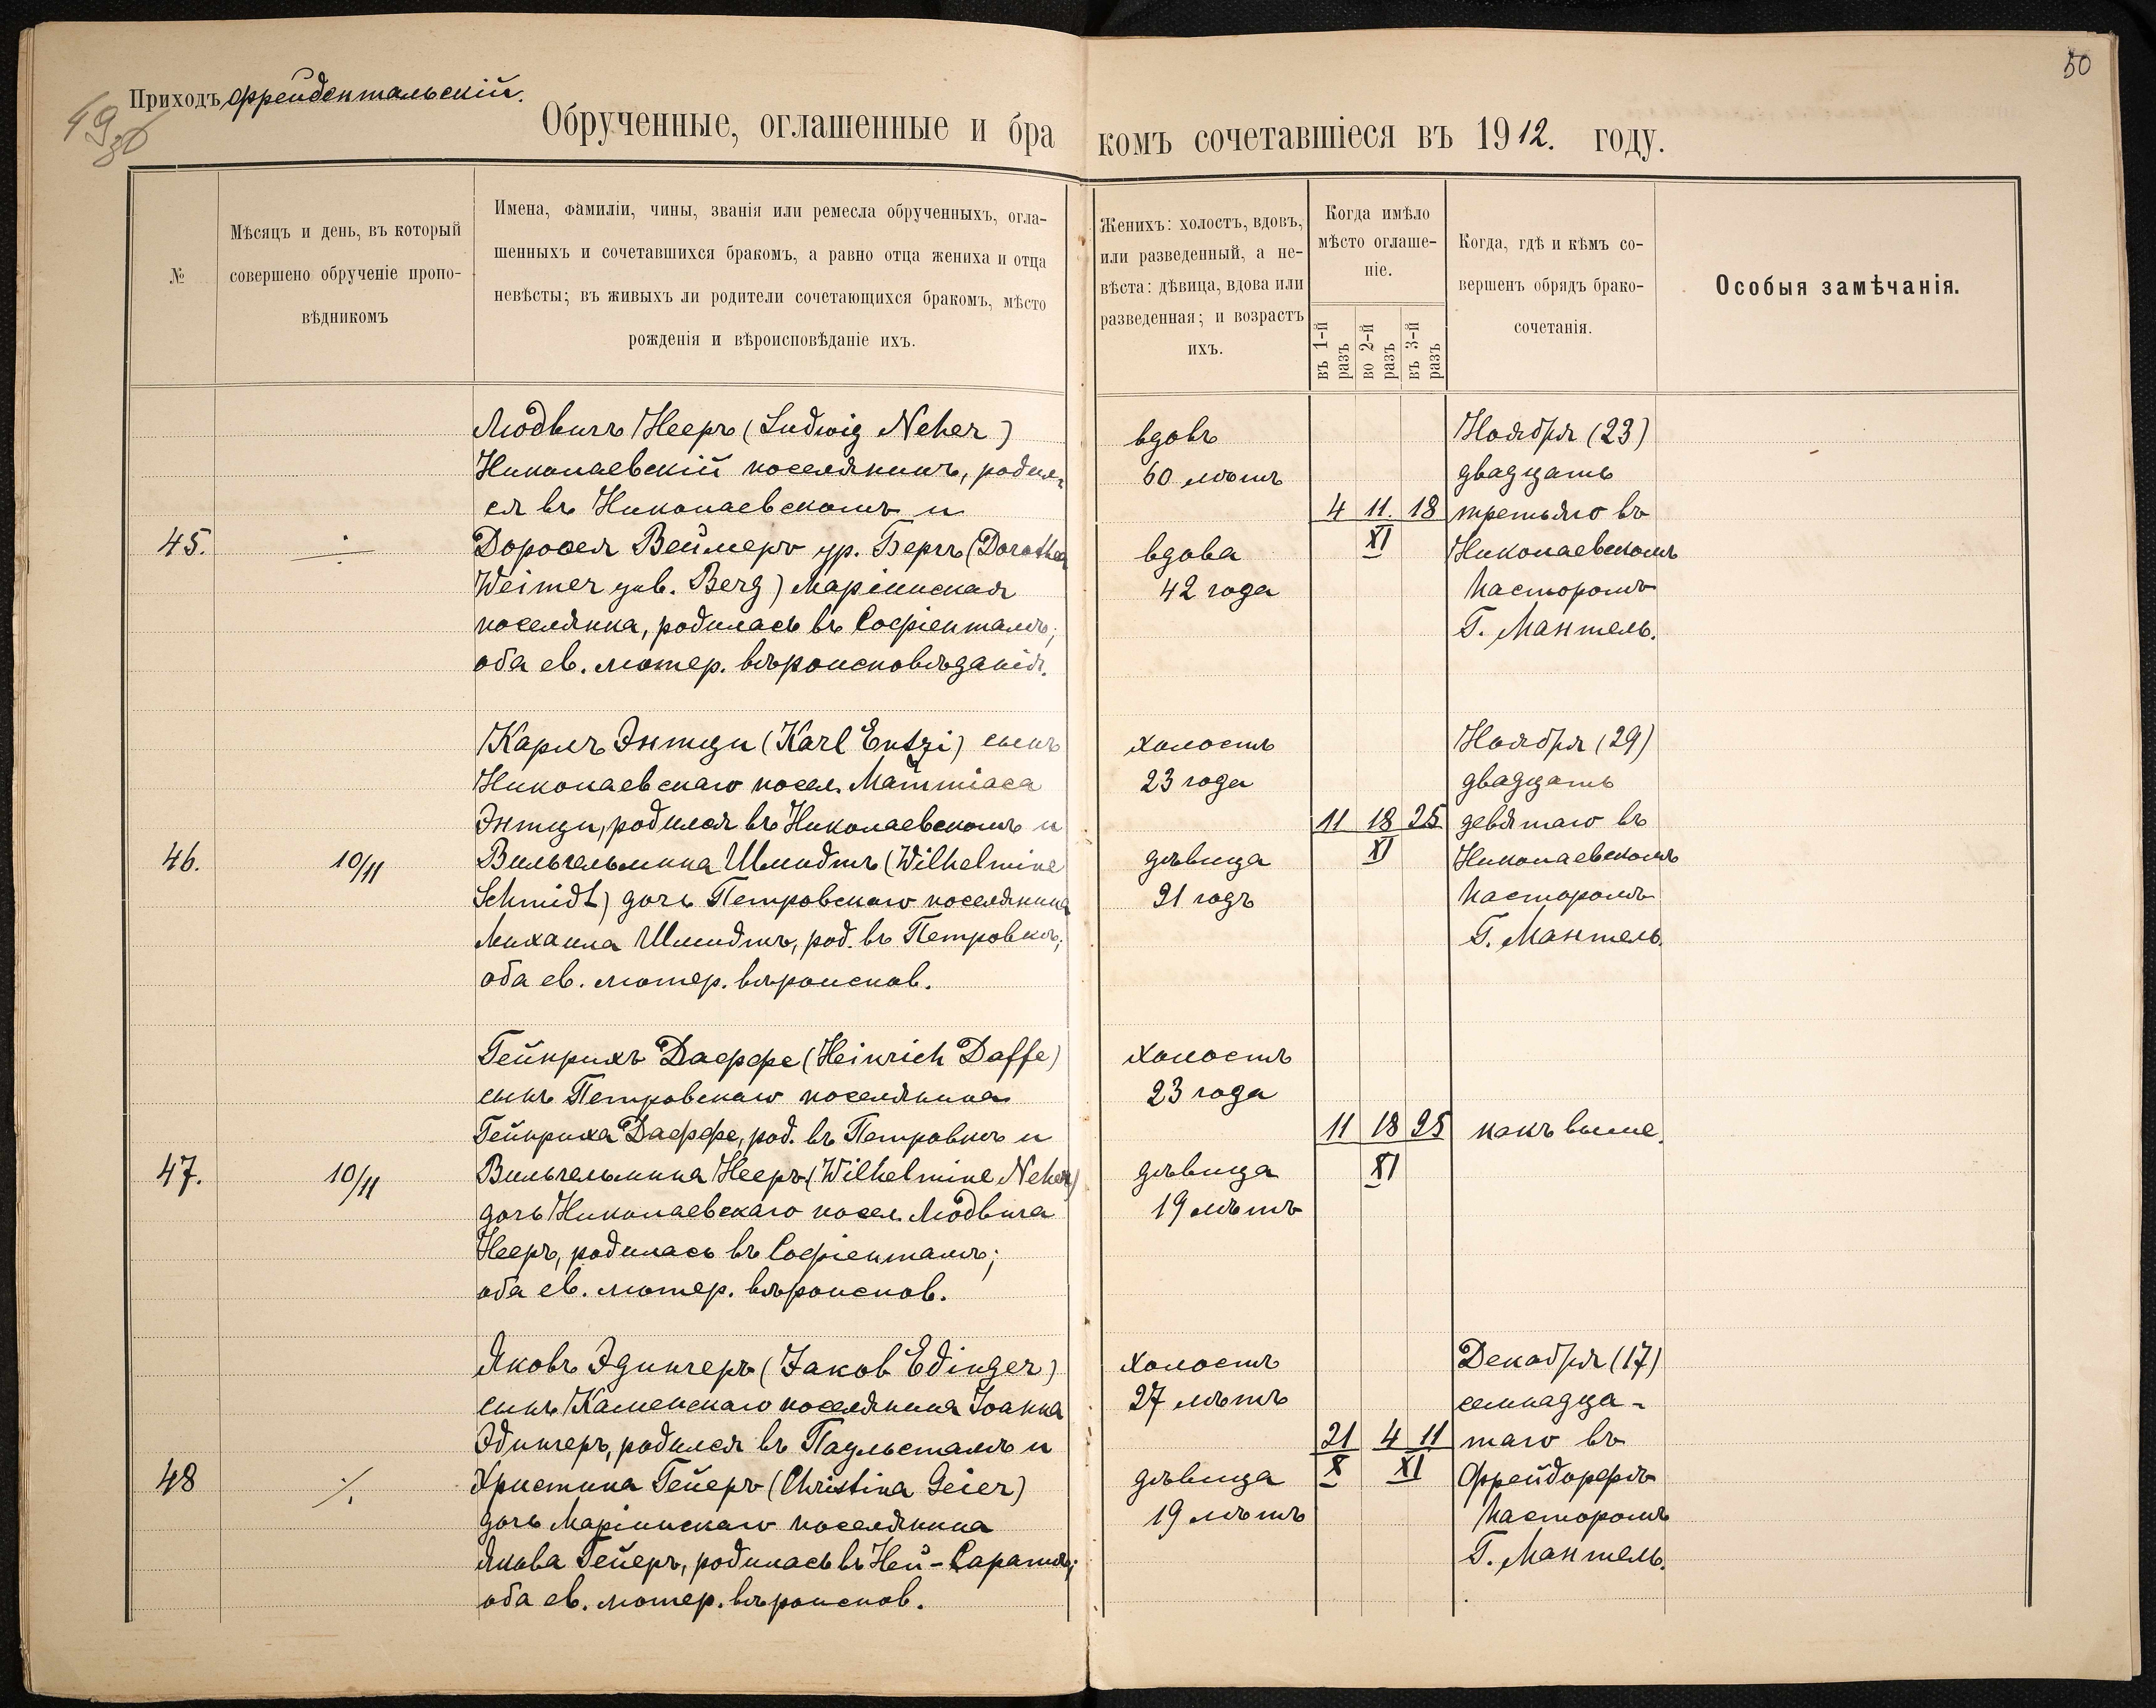 Приходъ Фрейдентальскій.
50
49об
Обрученные, оглашенные и бракомъ сочетавшіеся въ 1912. году.
№
Мѣсяцъ и день, въ который
совершено обрученіе пропо-
вѣдникомъ
Имена, фамиліи, чины, званія или ремесла обрученныхъ, огла-
шенныхъ и сочетавшихся бракомъ, а равно отца жениха и отца
невѣсты; въ живыхъ ли родители сочетающихся бракомъ, мѣсто
рожденія и вѣроисповѣданіе ихъ.
Женихъ: холостъ, вдовъ,
или разведенный, а не-
вѣста: дѣвица, вдова или
разведенная; и возрастъ
ихъ.
Когда имѣло
мѣсто оглаше-
ніе.
въ 1-й разъ
во 2-й разъ
въ 3-й разъ
Когда, гдѣ и кѣмъ со-
вершенъ обрядъ брако-
сочетанія.
Особыя замѣчанія.
45.
÷
Людвигъ Нееръ (Ludwig Neher)
Николаевскій поселянинъ, родил-
ся въ Николаевскомъ и
Доροѳея Веймеръ ур. Бергъ (Dorothea
Weimer geb. Berg) Маріинская
поселянка, родилась въ Софіенталѣ;
оба ев. лютер. вѣроисповѣданія.
вдовъ
60 лѣтъ
вдова
42 года
4 11. 18
XI
Ноября (23)
двадцать
третьяго въ
Николаевскомъ
Пасторомъ
Г. Мантель.
46.
10/11
Карлъ Энтци (Karl Entzi) сынъ
Николаевскаго посел. Маттіаса
Энтци, родился въ Николаевскомъ и
Вильгельмина Шмидтъ (Wilhelmine
Schmidt) дочь Петровскаго поселянина
Михаила Шмидтъ, род. въ Петровкѣ;
оба ев. лютер. вѣроиспов.
холостъ
23 года
дѣвица
21 годъ
11 18 25
XI
Ноября (29)
двадцать
девятаго въ
Николаевскомъ
Пасторомъ
Г. Мантель.
47.
10/11
Гейнрихъ Даффе (Heinrich Daffe)
сынъ Петровскаго поселянина
Гейнриха Даффе, род. въ Петровкѣ и
Вильгельмина Нееръ (Wilhelmine Neher)
дочь Николаевскаго посел. Людвига
Нееръ, родилась въ Софіенталѣ;
оба ев. лютер. вѣроиспов.
холостъ
23 года
дѣвица
19 лѣтъ
11 18 25
XI
какъ выше.
48
·/.
Яковъ Эдингеръ (Jakob Edinger)
сынъ Каменскаго поселянина Іоанна
Эдингеръ, родился въ Паульсталѣ и
Христина Гейеръ (Christina Geier)
дочь Маріинскаго поселянина
Якова Гейеръ, родилась въ Ней-Саратѣ;
оба ев. лютер. вѣроиспов.
холостъ
27 лѣтъ
дѣвица
19 лѣтъ
21 4 11
X XI
Декабря (17)
семнадца-
таго въ
Фрейдорфѣ
Пасторомъ
Г. Мантель.